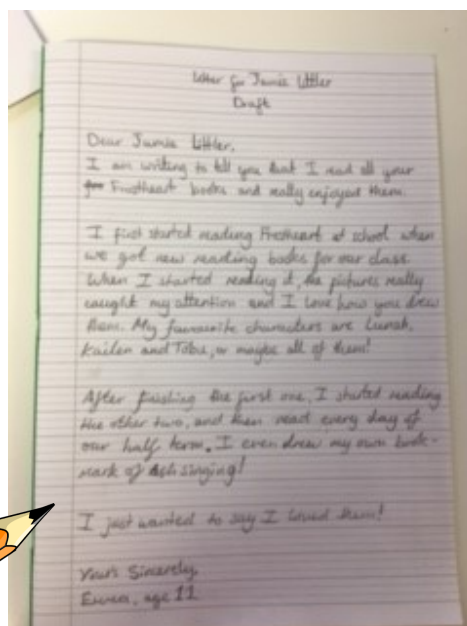 Letter for Jamie Littler
Draft
Dear Jamie Littler,
I am writing to tell you that I read all your
Frostheart books and really enjoyed them.
I first started reading Frostheart at school when
we got new reading books for our class.
When I started reading it, the pictures really
caught my attention and I love how you drew
them. My favourite characters are Lunah,
Kailen and Tobu, or maybe all of them!
After finishing the first one, I started reading
the other two, and then read every day of
our half term. I even drew my own book-
mark of Ash singing!
I just wanted to say I loved them!
Yours Sincerely,
age 11